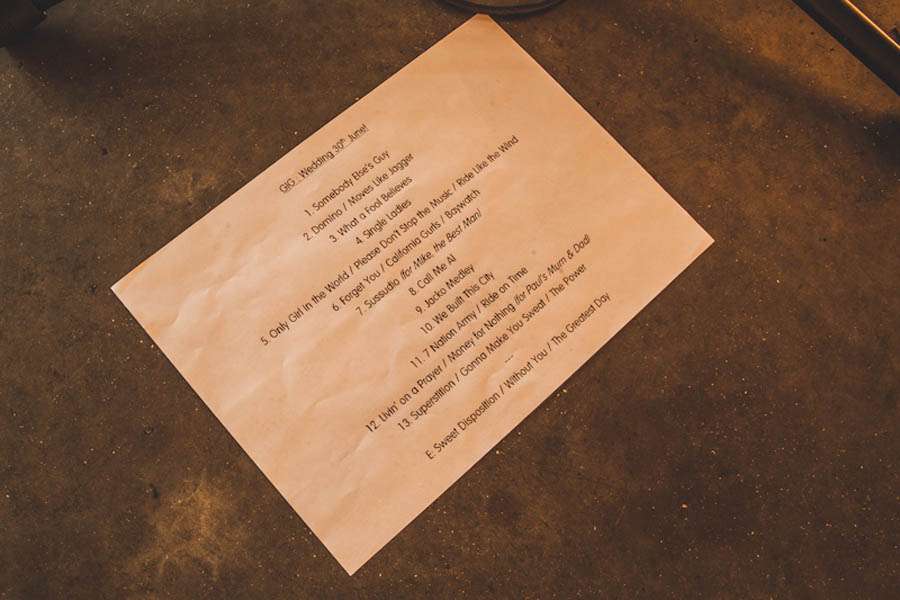 GIG . Wedding 30th June!
1. Somebody Else's Guy
2. Domino / Moves Like Jagger
3. What a Fool Believes
4. Single Ladies
5. Only Girl in the World / Please Don't Stop the Music / Ride Like the Wind
6 Forget You / California Gurls / Baywatch
7. Sussudio (for Mike, the Best Man)
8. Call Me Al
9. Jacko Medley
10. We Built This City
11. 7 Nation Army / Ride on Time
12. Livin' on a Prayer / Money for Nothing (for Paul's Mum & Dad)
13. Superstition / Gonna Make You Sweat / The Power
....
E. Sweet Disposition / Without You / The Greatest Day